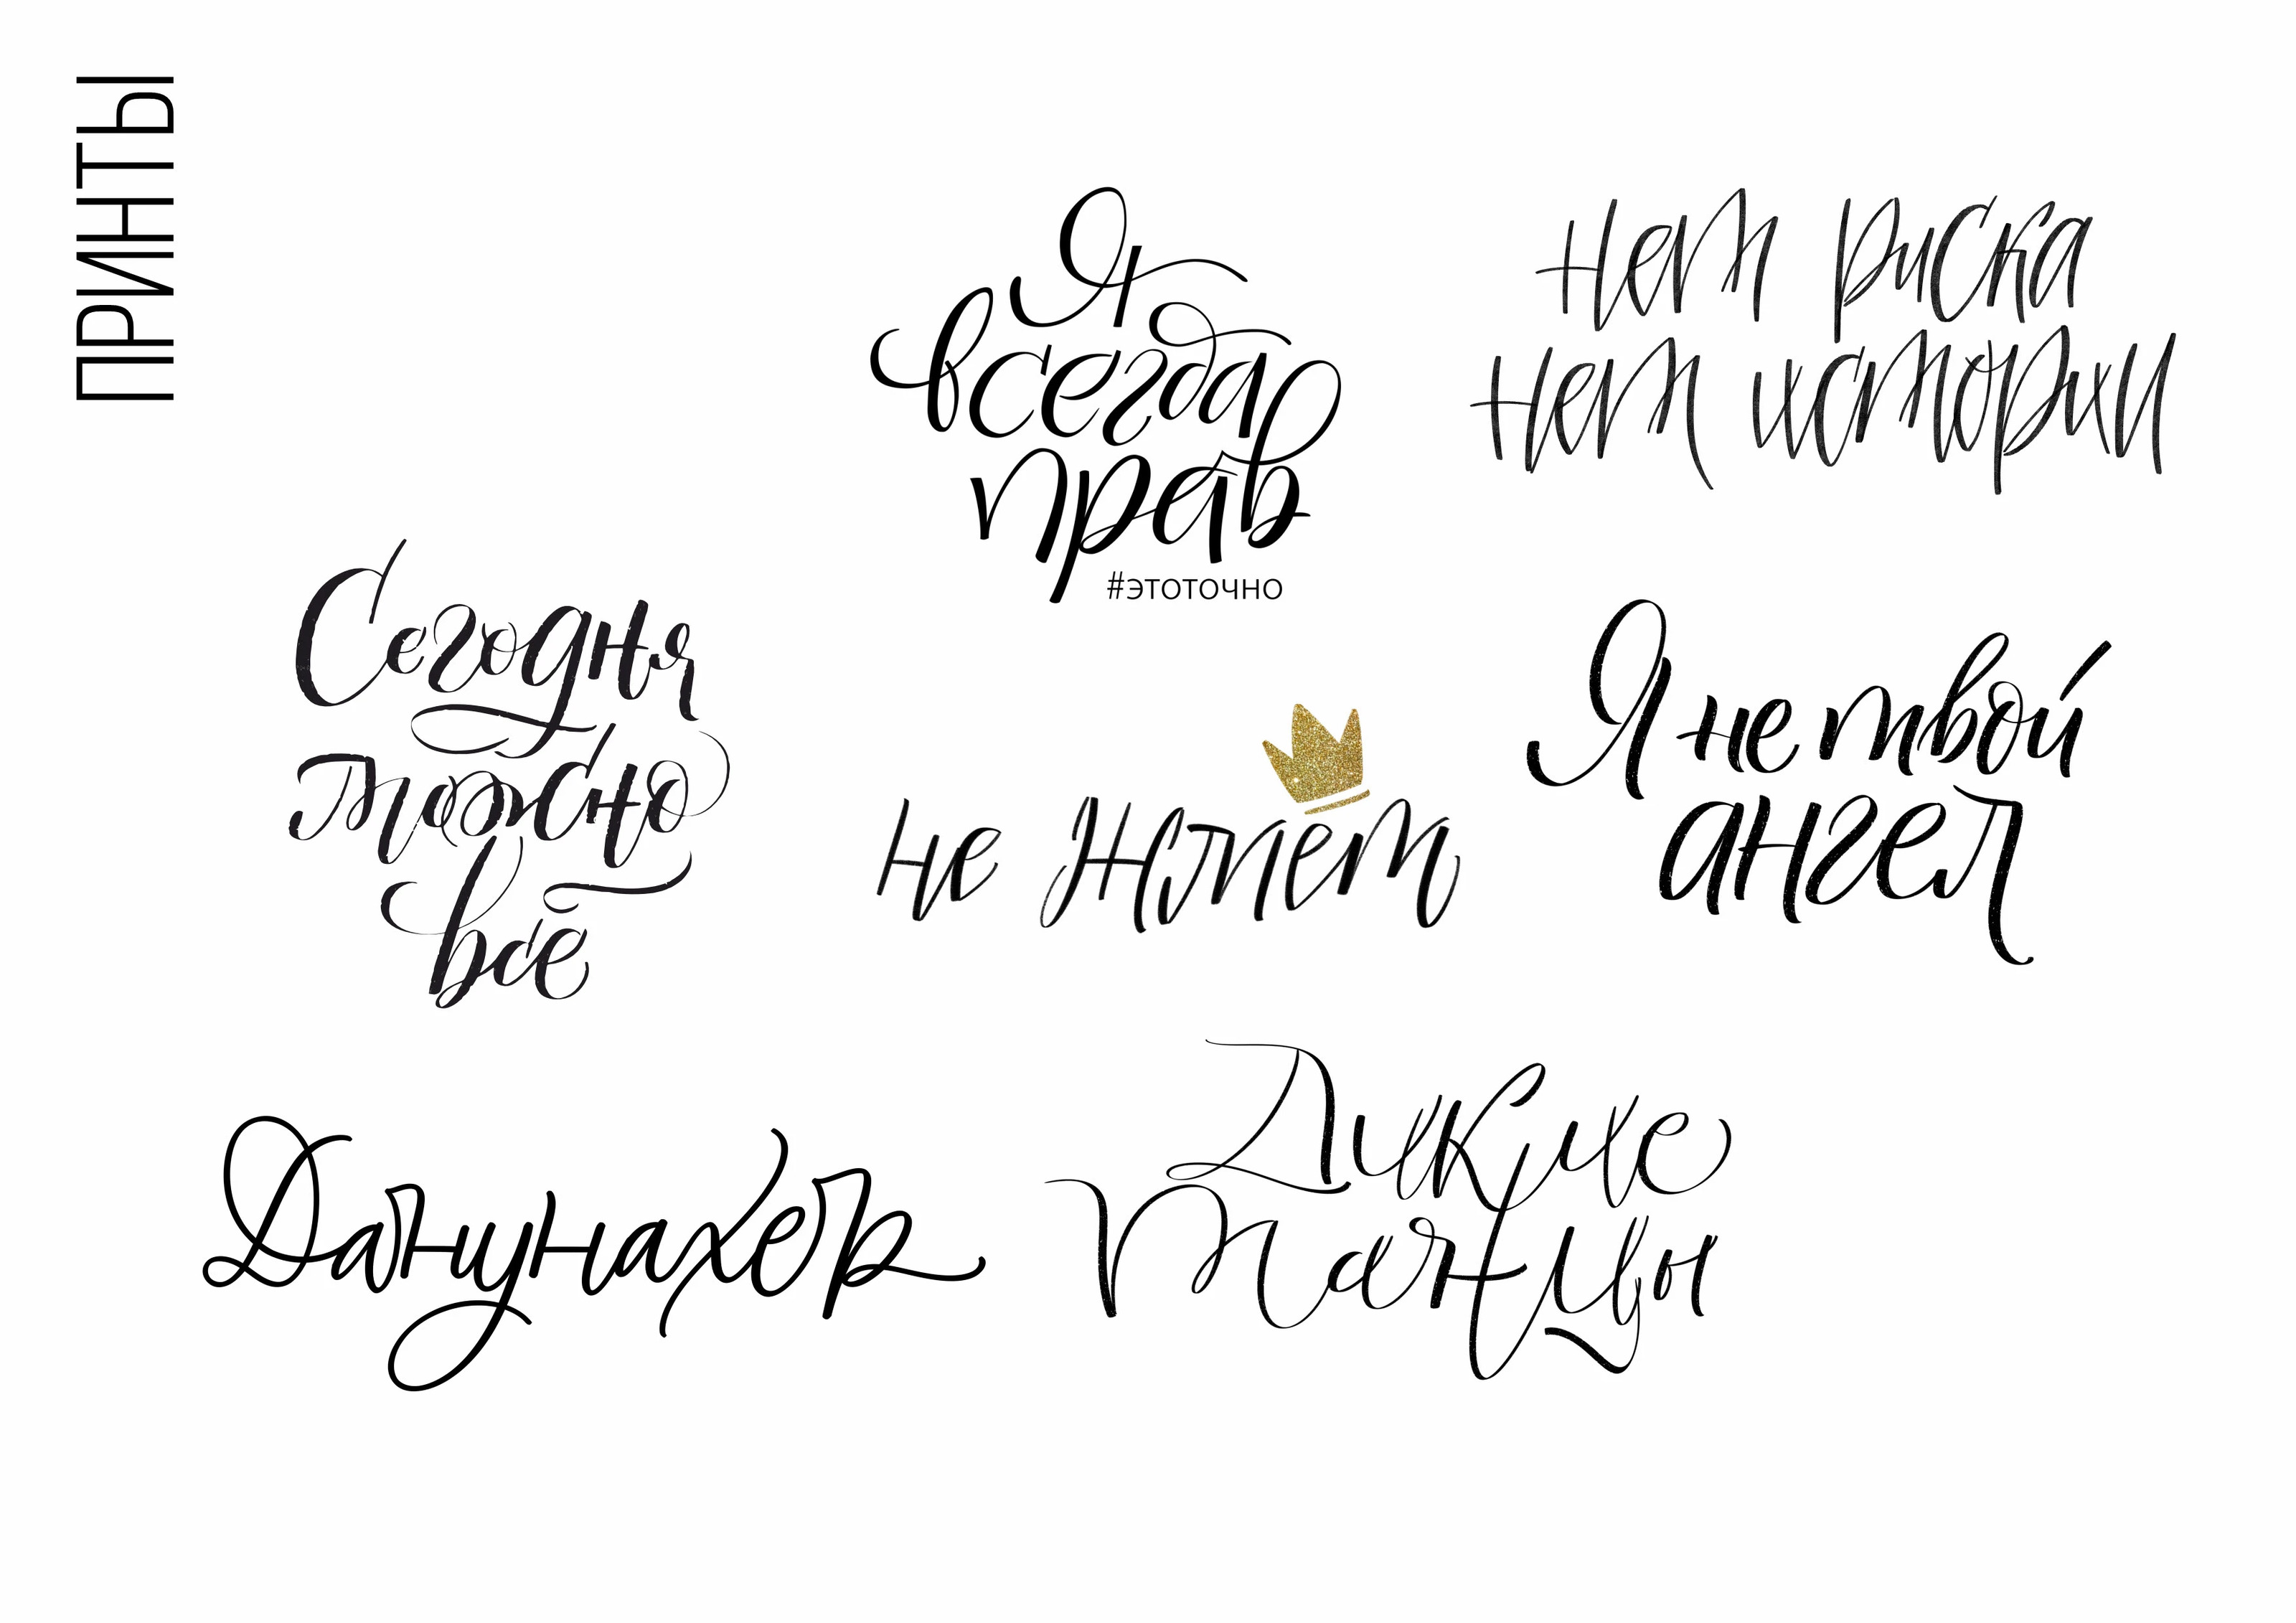 ПРИНТЫ
Я
всегда
прав
#этоточно
нет риска
нет истории
Сегодня
можно
всё
не жмёт
Я не твой
ангел
Данунахер
Дикие
танцы